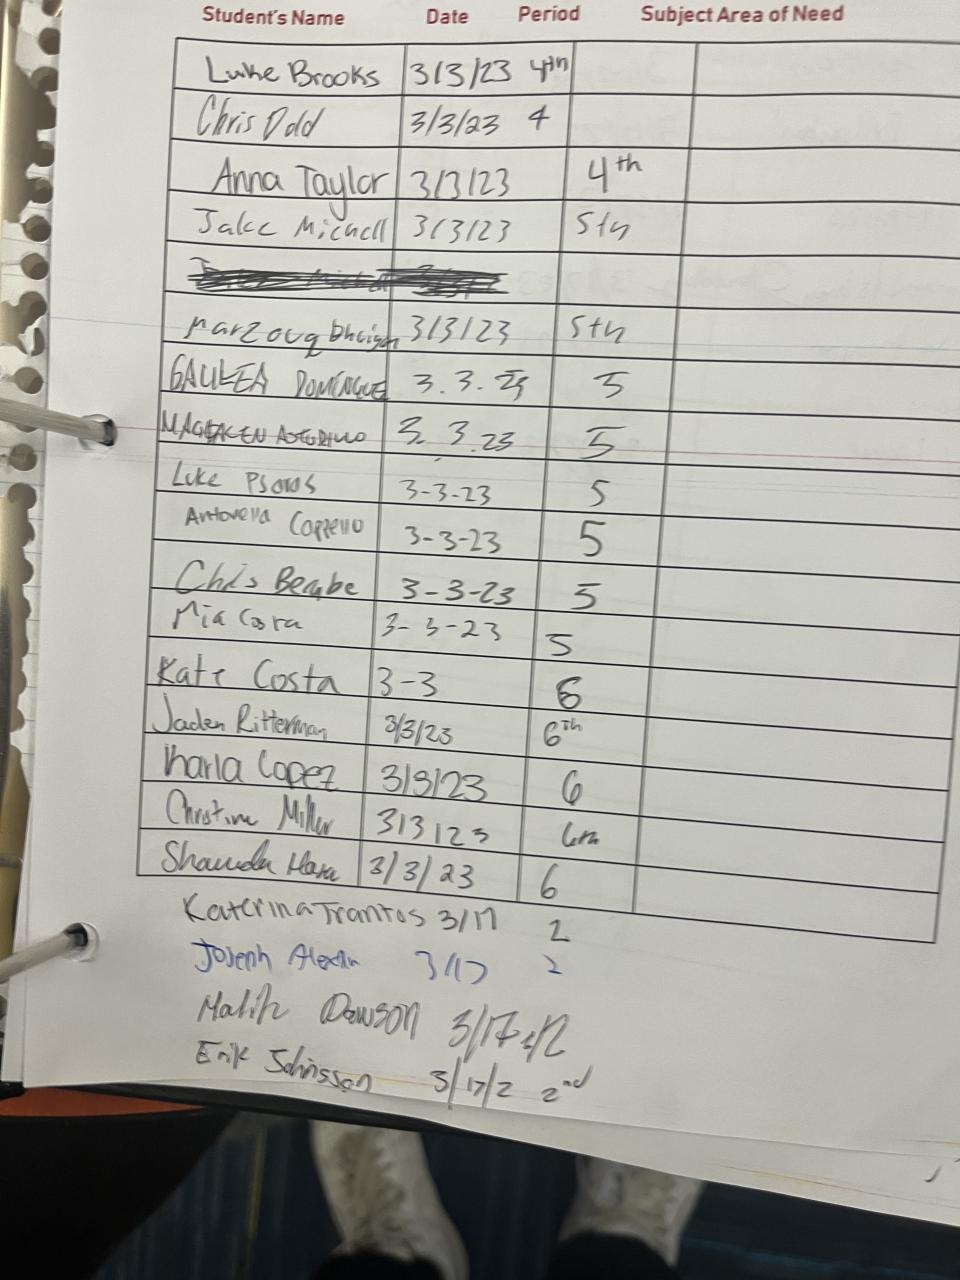 Student's Name Date Period Subject Area of Need
Luke Brooks 3/3/23 4th
Chris Dodd 3/3/23 4
Anna Taylor 3/3/23 4th
Jake 3/3/23 5th
Marzouq 3/3/23 5th
3.3.23 5
3.3.23 5
Luke Psoras 3-3-23 5
Antonella Coppello 3-3-23 5
Chris 3-3-23 5
Mia 3-3-23 5
Kate Costa 3-3 6
Jaden Ritterman 3/3/23 6th
Karla Lopez 3/3/23 6
Christine Miller 3/3/23 6th
3/3/23 6
Katerina Trantos 3/17 2
Joseph 3/17 2
Malik Dawson 3/17
Erik 3/17/2 2nd